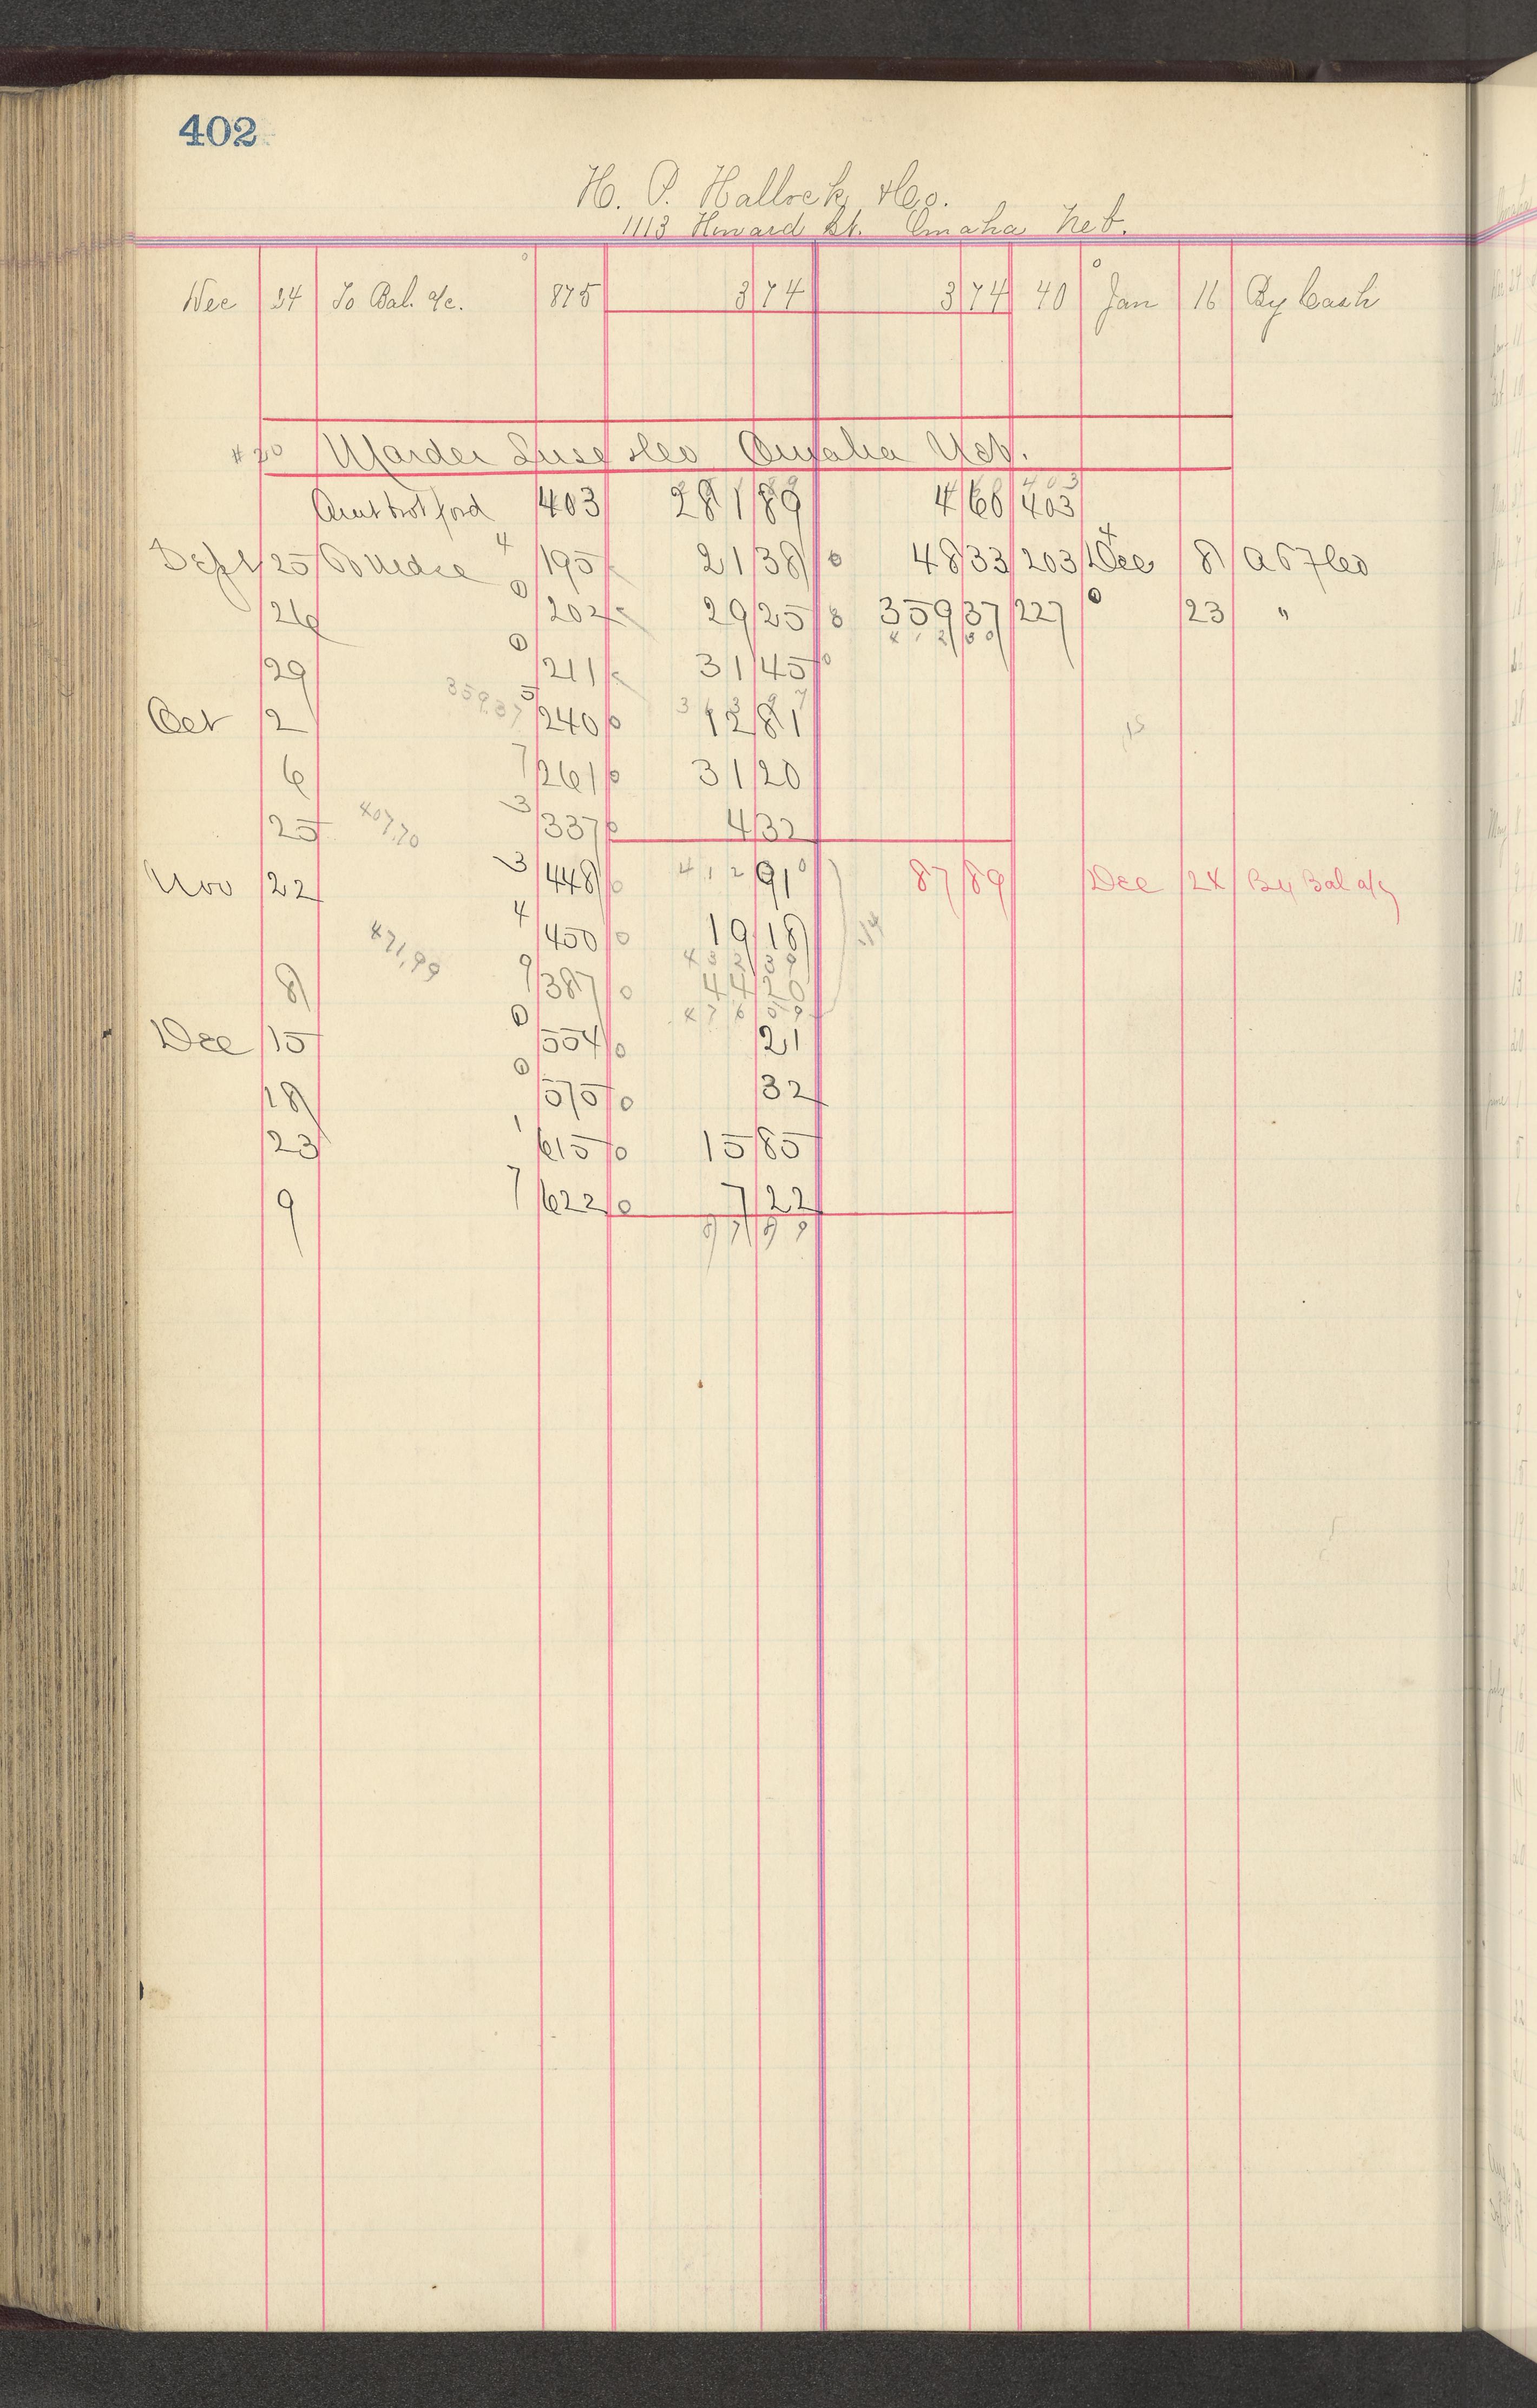 402
H. P. Hallock & Co.
1113 Howard St. Omaha Neb.
Dec 24 To Bal. a/c. 875 3 74 3 74 40 Jan 16 By Cash
#20 Marder Luse & Co Omaha Neb.
Amt brot ford 403 281 89 4 60 403
Sept 25 To Mdse 4 195 21 38 48 33 203 Dec 8
26 0 202 29 25 359 37 227 0 23 "
412 30
29 0 211 31 45
359.37
Oct 2 5 240 12 81
6 7 261 31 20
407.70
25 3 337 4 32
Nov 22 3 448 412 91 87 89 Dec 24 By Bal a/c
4 450 19 18
471.99
432 39
8 9 387 44 20
476 59
Dec 15 0 554 21
18 0 575 32
23 1 615 15 85
9 7 622 7 22
87 89